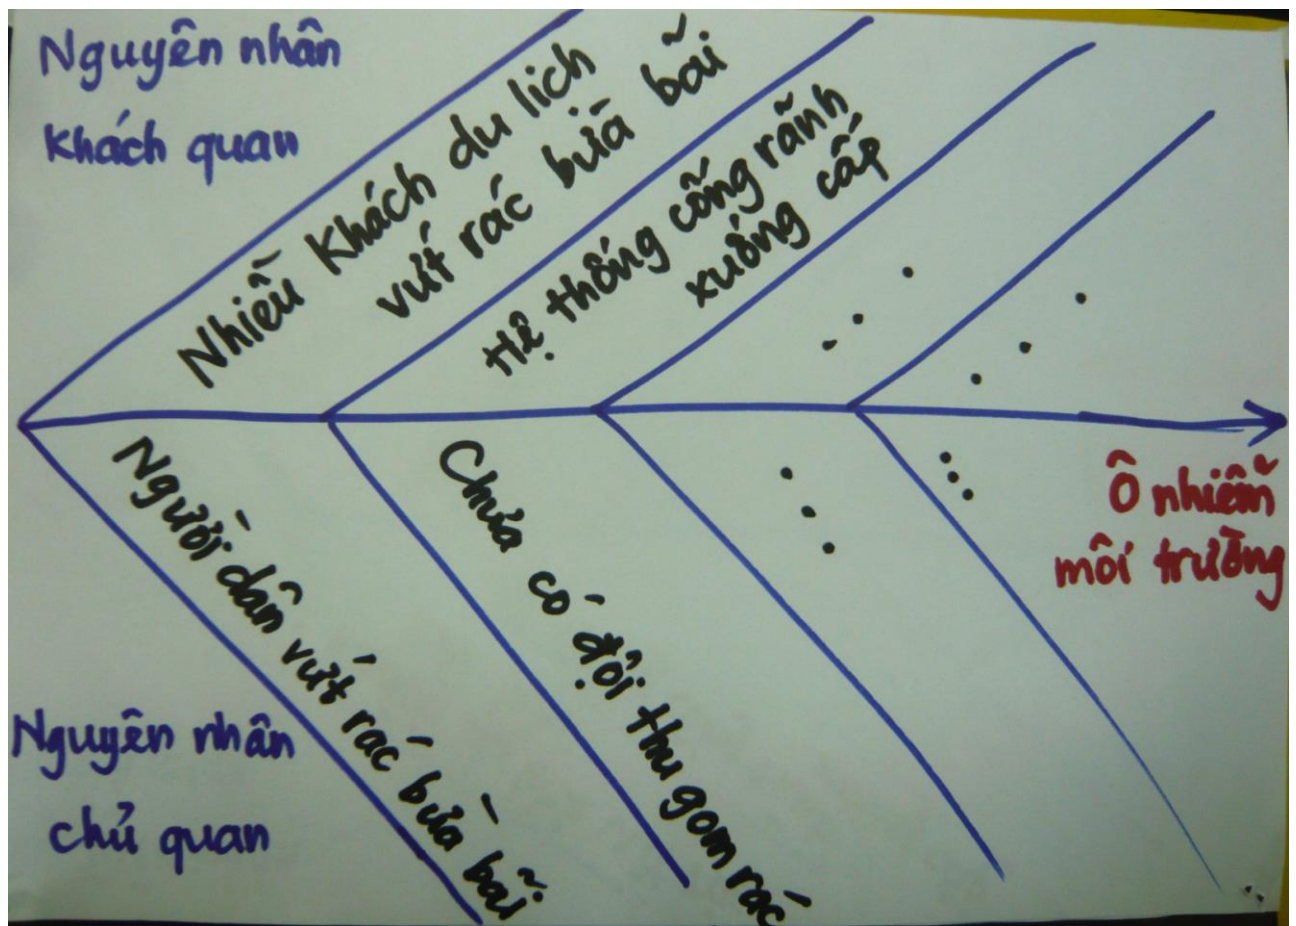 Nguyên nhân
khách quan
Nhiều khách du lich
vứt rác bừa bãi
Hệ thống cống rãnh
xuống cấp
...
...
Người dân vứt rác bừa bãi
Chưa có đội thu gom rác
...
...
Ô nhiễm
môi trường
Nguyên nhân
chủ quan